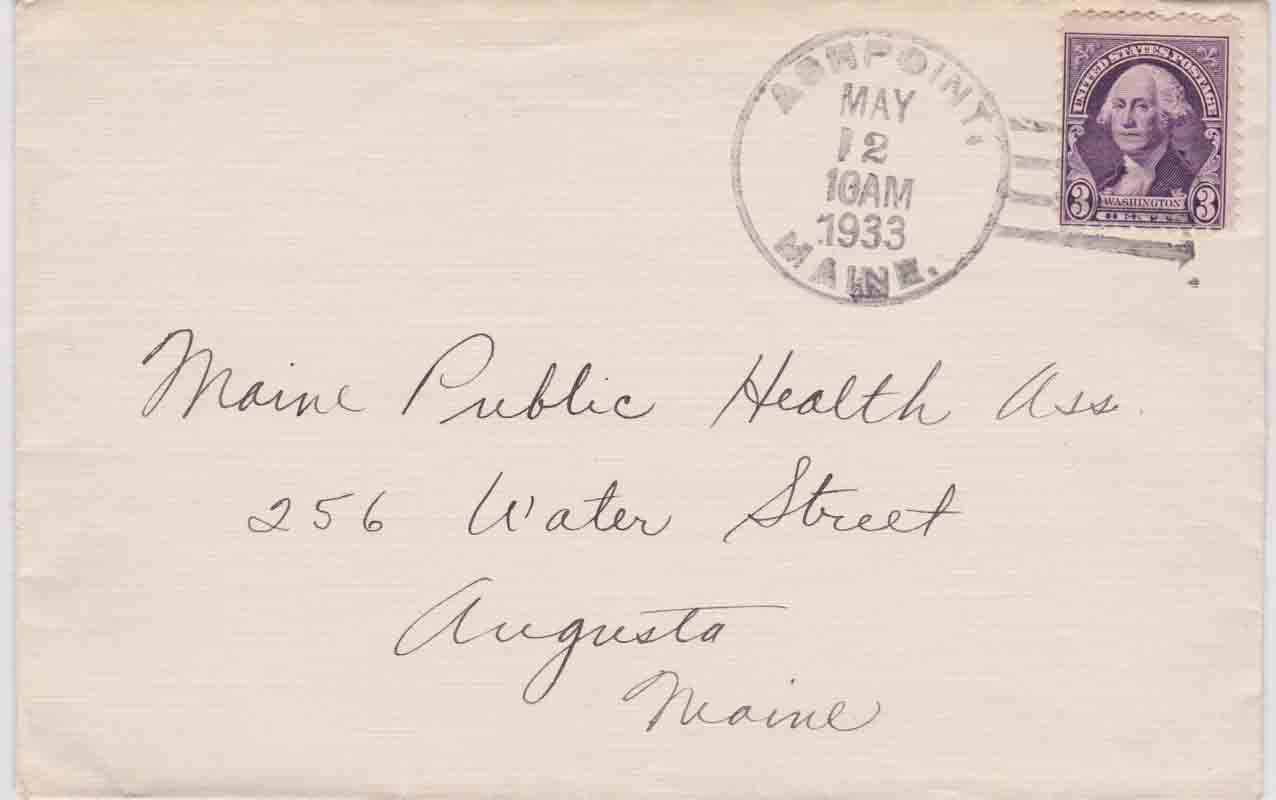 ASHPOINT,
MAY
12
10AM
1933
MAINE.
UNITED STATES POSTAGE
3 WASHINGTON 3
Maine Public Health Ass.
256 Water Street
Augusta
Maine